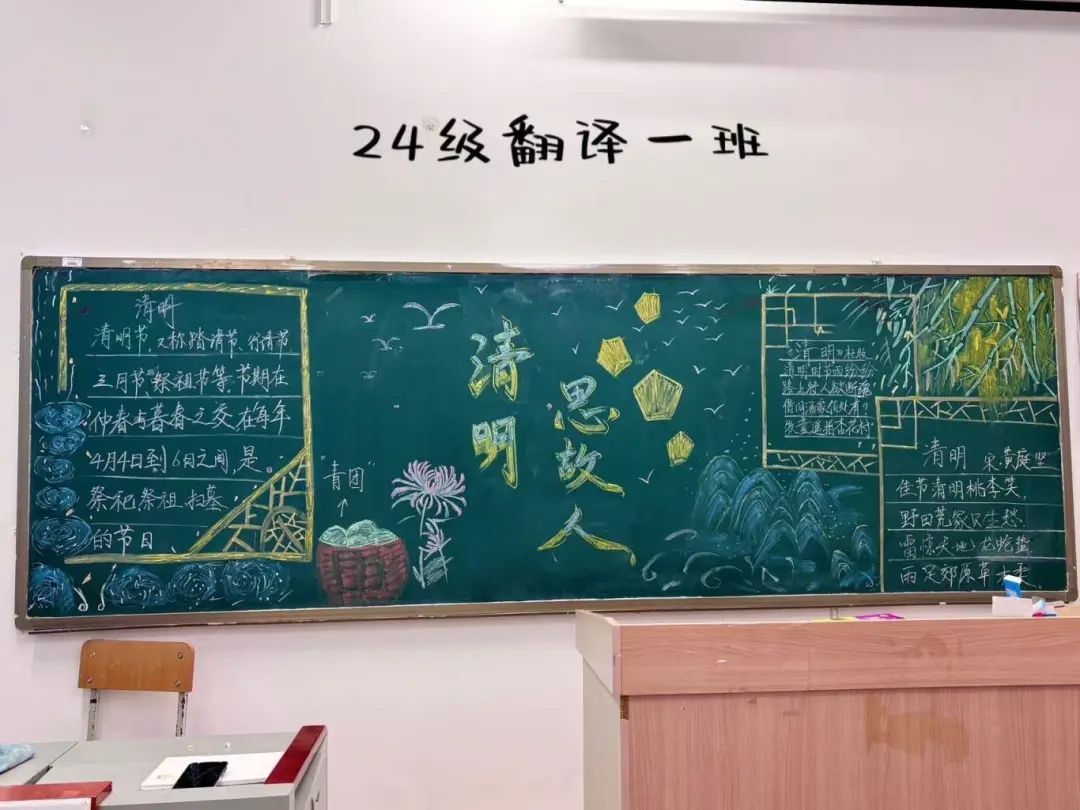 24级翻译一班
清明
清明节,又称踏清节、行清节
三月节、祭祖节等,节期在
仲春与暮春之交,在每年
4月4日到6日之间,是
祭祀、祭祖、扫墓
的节日、
青团
清明
思故人
《清明》杜牧
清明时节雨纷纷
路上行人欲断魂
借问酒家何处有?
牧童遥指杏花村
清明 宋 黄庭坚
佳节清明桃李笑,
野田荒冢只生愁.
雷惊天地龙蛇蛰
雨足郊原草木柔、